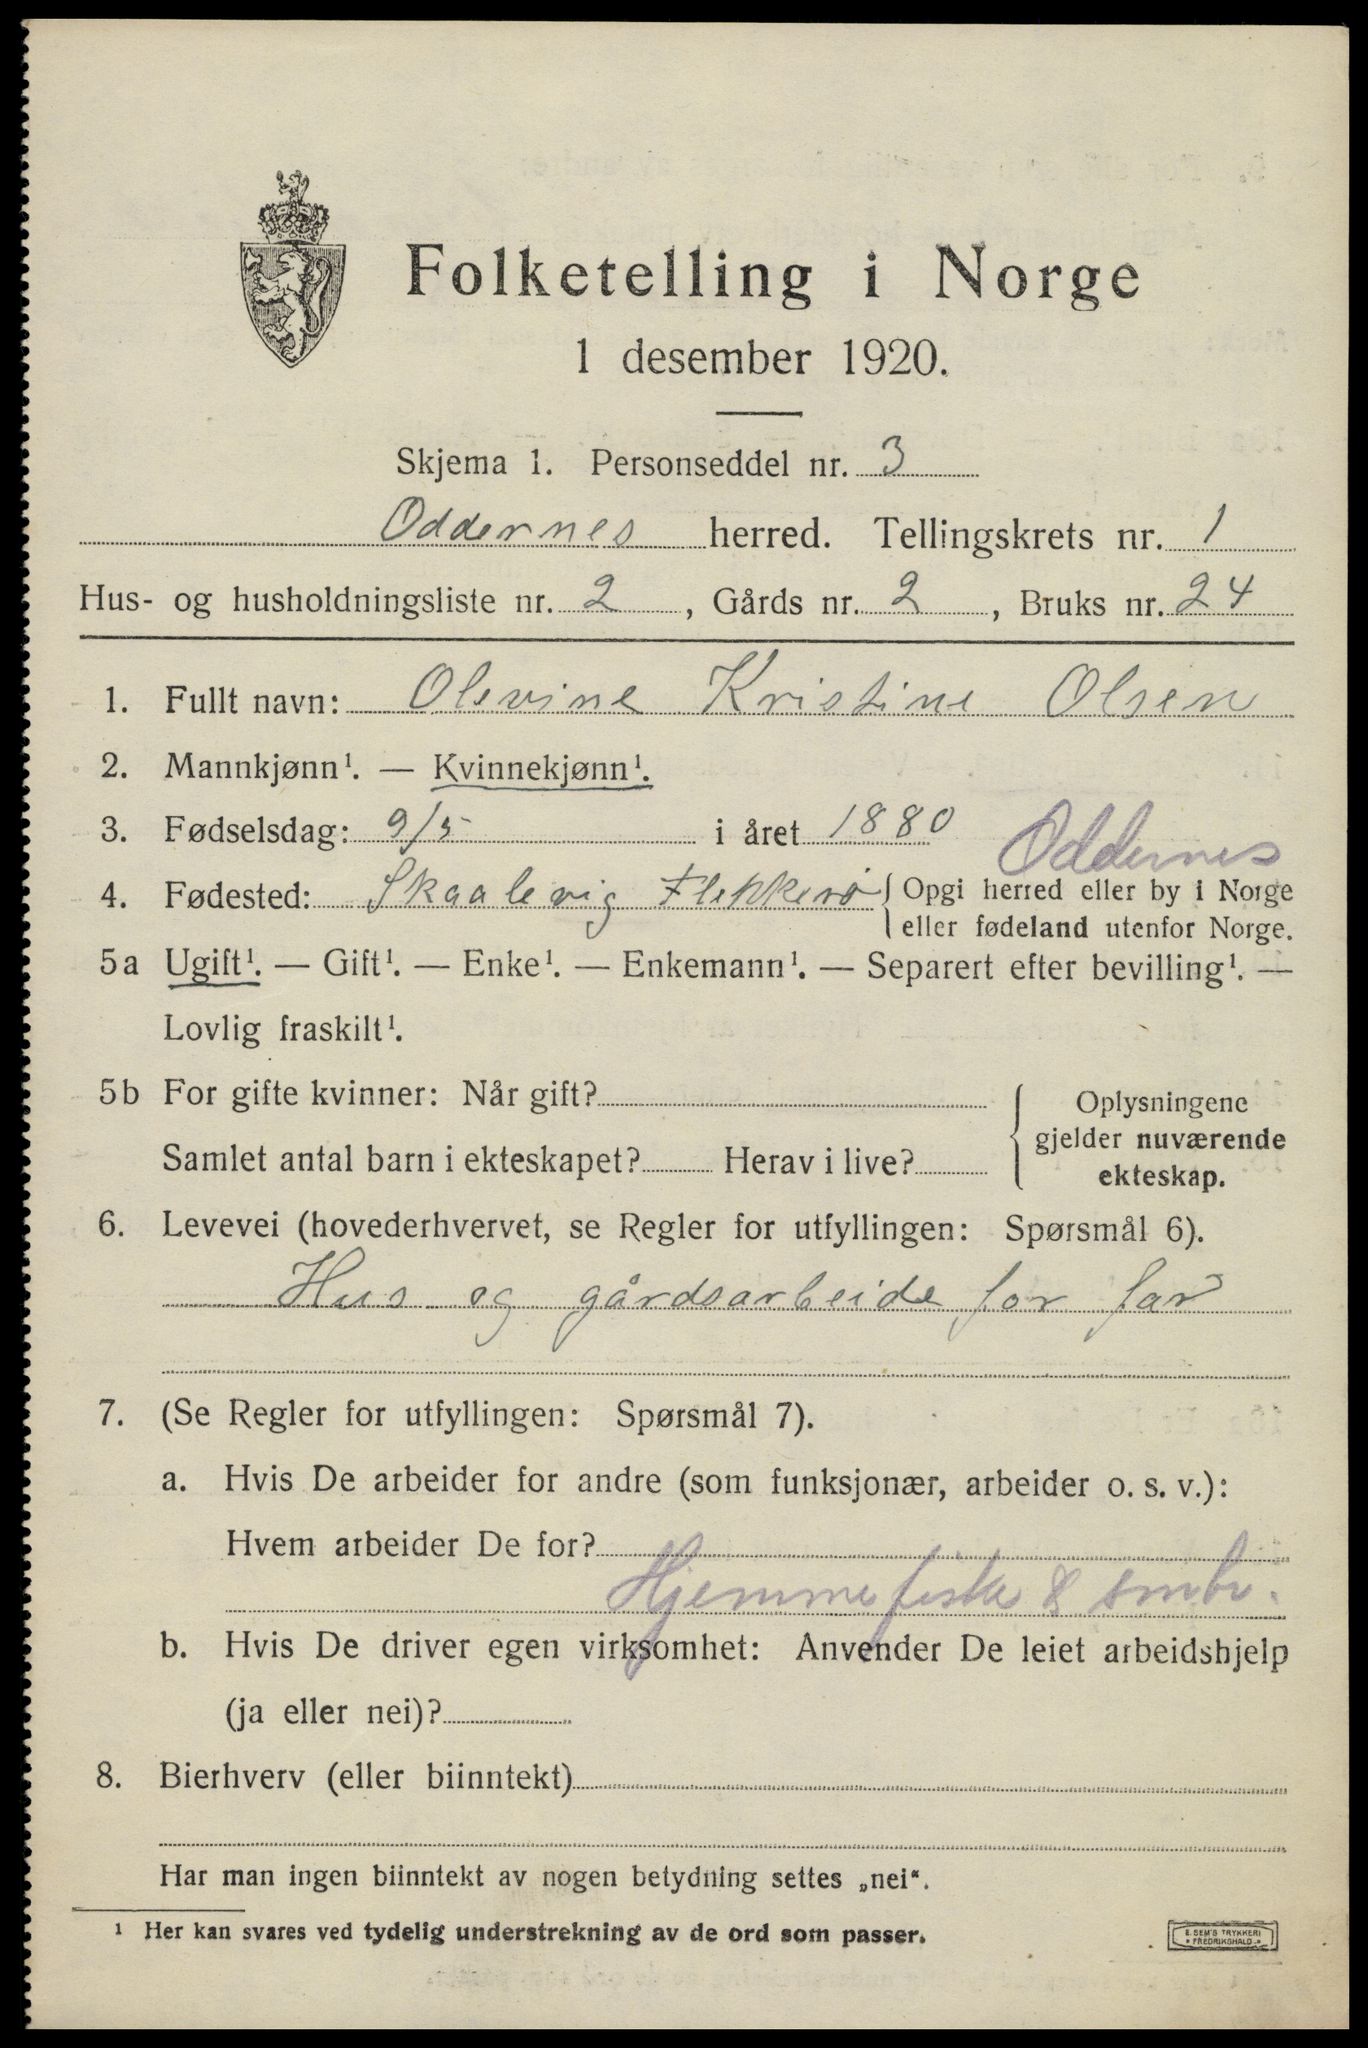 Folketelling i Norge
1 desember 1920.
Skjema 1. Personseddel nr. 3
Oddernes herred. Tellingskrets nr. 1
Hus- og husholdningsliste nr. 2, Gårds nr. 2, Bruks nr. 24
1. Fullt navn: Olevine Kristine Olsen
2. Mannkjønn¹. — Kvinnekjønn¹.
3. Fødselsdag: 9/5 i året 1880
Oddernes
4. Fødested: Skaalevig Flekkerø { Opgi herred eller by i Norge
eller fødeland utenfor Norge.
5a Ugift¹. — Gift¹. — Enke¹. — Enkemann¹. — Separert efter bevilling¹. —
Lovlig fraskilt¹.
5b For gifte kvinner: Når gift?
Samlet antal barn i ekteskapet? Herav i live?
Oplysningene
gjelder nuværende
ekteskap.
6. Levevei (hovederhvervet, se Regler for utfyllingen: Spørsmål 6).
Hus og gårdsarbeide for far
7. (Se Regler for utfyllingen: Spørsmål 7).
a. Hvis De arbeider for andre (som funksjonær, arbeider o. s. v.):
Hvem arbeider De for?
Hjemmefiske & smbr.
b. Hvis De driver egen virksomhet: Anvender De leiet arbeidshjelp
(ja eller nei)?
8. Bierhverv (eller biinntekt)
Har man ingen biinntekt av nogen betydning settes „nei“.
¹ Her kan svares ved tydelig understrekning av de ord som passer.
E. SEM'S TRYKKERI
* FREDRIKSHALD *